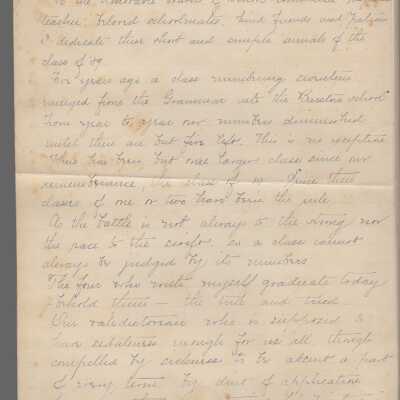 To the Honorable Board of
teacher, beloved schoolmates, kind friends and
I dedicate these short and simple annals of the
class of 89.
Four years ago a class numbering
emerged from the Grammar into the school
From year to year our numbers diminished
until there are but five left. This is no exception
There has been but one larger class since our
remembrance, the class of Since then
classes of one or two have been the rule
As the battle is not always to the strong nor
the race to the swift, so a class cannot
always be judged by its numbers
The four who with myself graduate today
behold them — the true and tried
Our valedictorian who is supposed to
have enough for us all though
compelled by sickness to be absent a part
of time, by dint of application